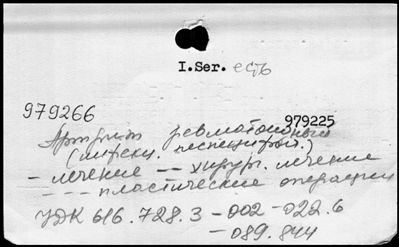 I.Ser. есть
979266
979225
Артрит ревматоидный
(инфекц. неспециф.)
- лечение -- хирург. лечение
--- пластические операции
УДК 616.728.3-002-022.6
-089.844